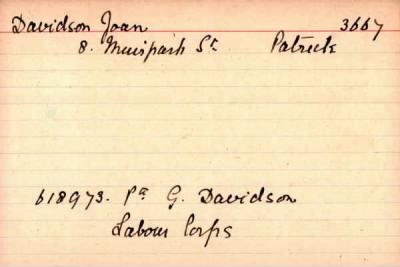 Davidson Joan 3667
8. Muirpark St. Patrick
618973. Pte G. Davidson
Labour Corps